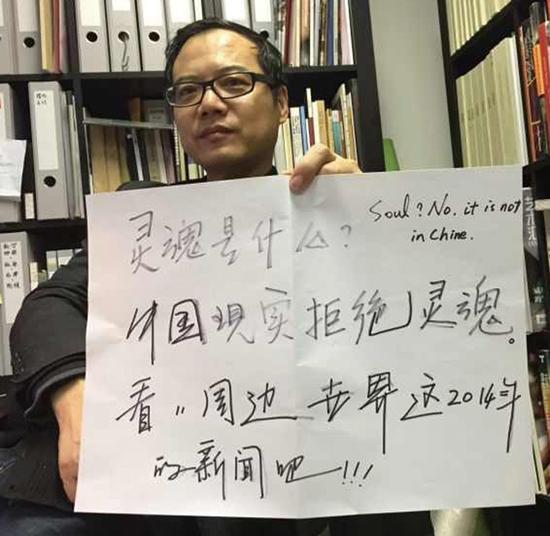 灵魂是什么?
Soul? No. it is not
in Chine.
中国現实拒绝灵魂。
看看周边世界这2014年
的新闻吧!!!